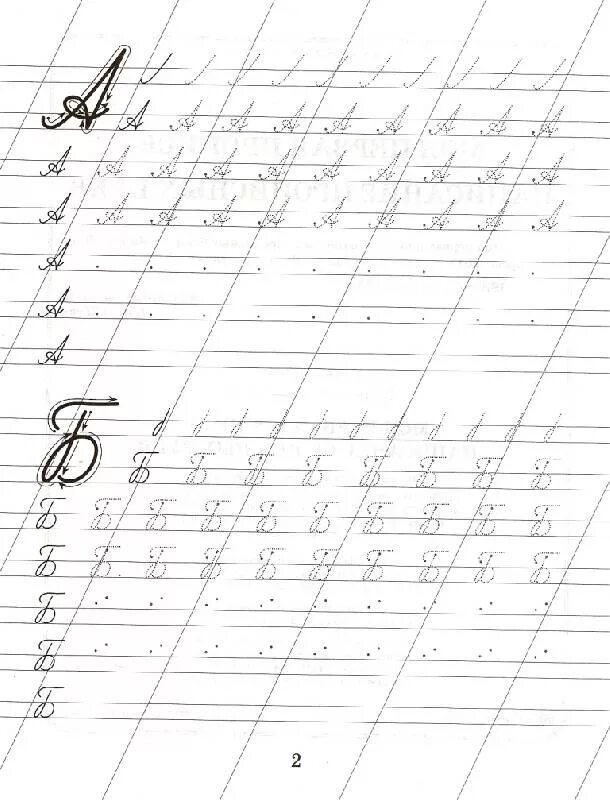 А
А А А А А А А А А
А А А А А А А А А А
А А А А А А А А А А
А
А
А
Б
Б Б Б Б Б Б Б Б
Б Б Б Б Б Б Б Б Б Б
Б Б Б Б Б Б Б Б Б Б
Б
Б
Б
2